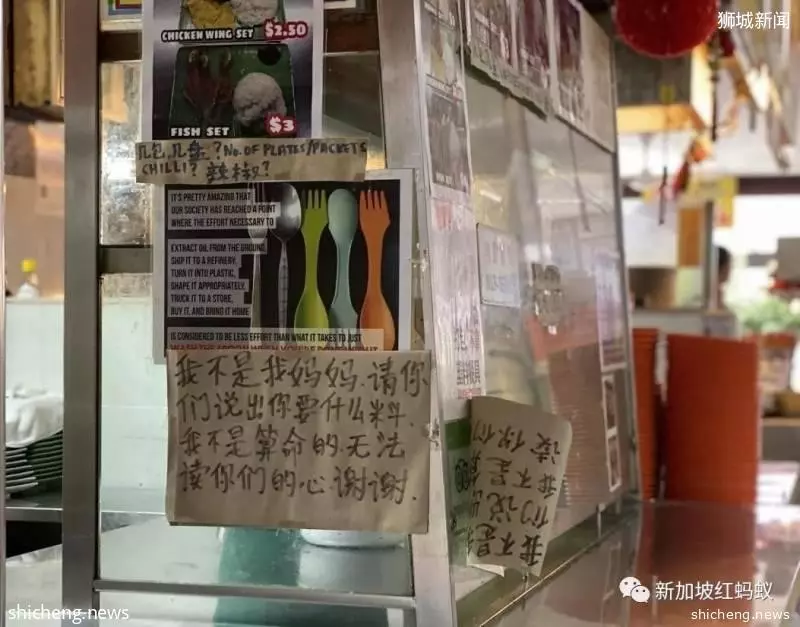 狮城新闻
CHICKEN WING SET $2.50
FISH SET $3
几包几盘?No. OF PLATES/PACKETS
CHILLI? 辣椒?
IT'S PRETTY AMAZING THAT
OUR SOCIETY HAS REACHED A POINT
WHERE THE EFFORT NECESSARY TO
EXTRACT OIL FROM THE GROUND,
SHIP IT TO A REFINERY,
TURN IT INTO PLASTIC,
SHAPE IT APPROPRIATELY,
TRUCK IT TO A STORE,
BUY IT, AND BRING IT HOME
IS CONSIDERED TO BE LESS EFFORT THAN WHAT IT TAKES TO JUST
我不是我妈妈.请你
们说出你要什么料.
我不是算命的.无法
读你们的心.谢谢.
我不是
们说
我不是
读你们
新加坡红蚂蚁
shicheng.news
shicheng.news